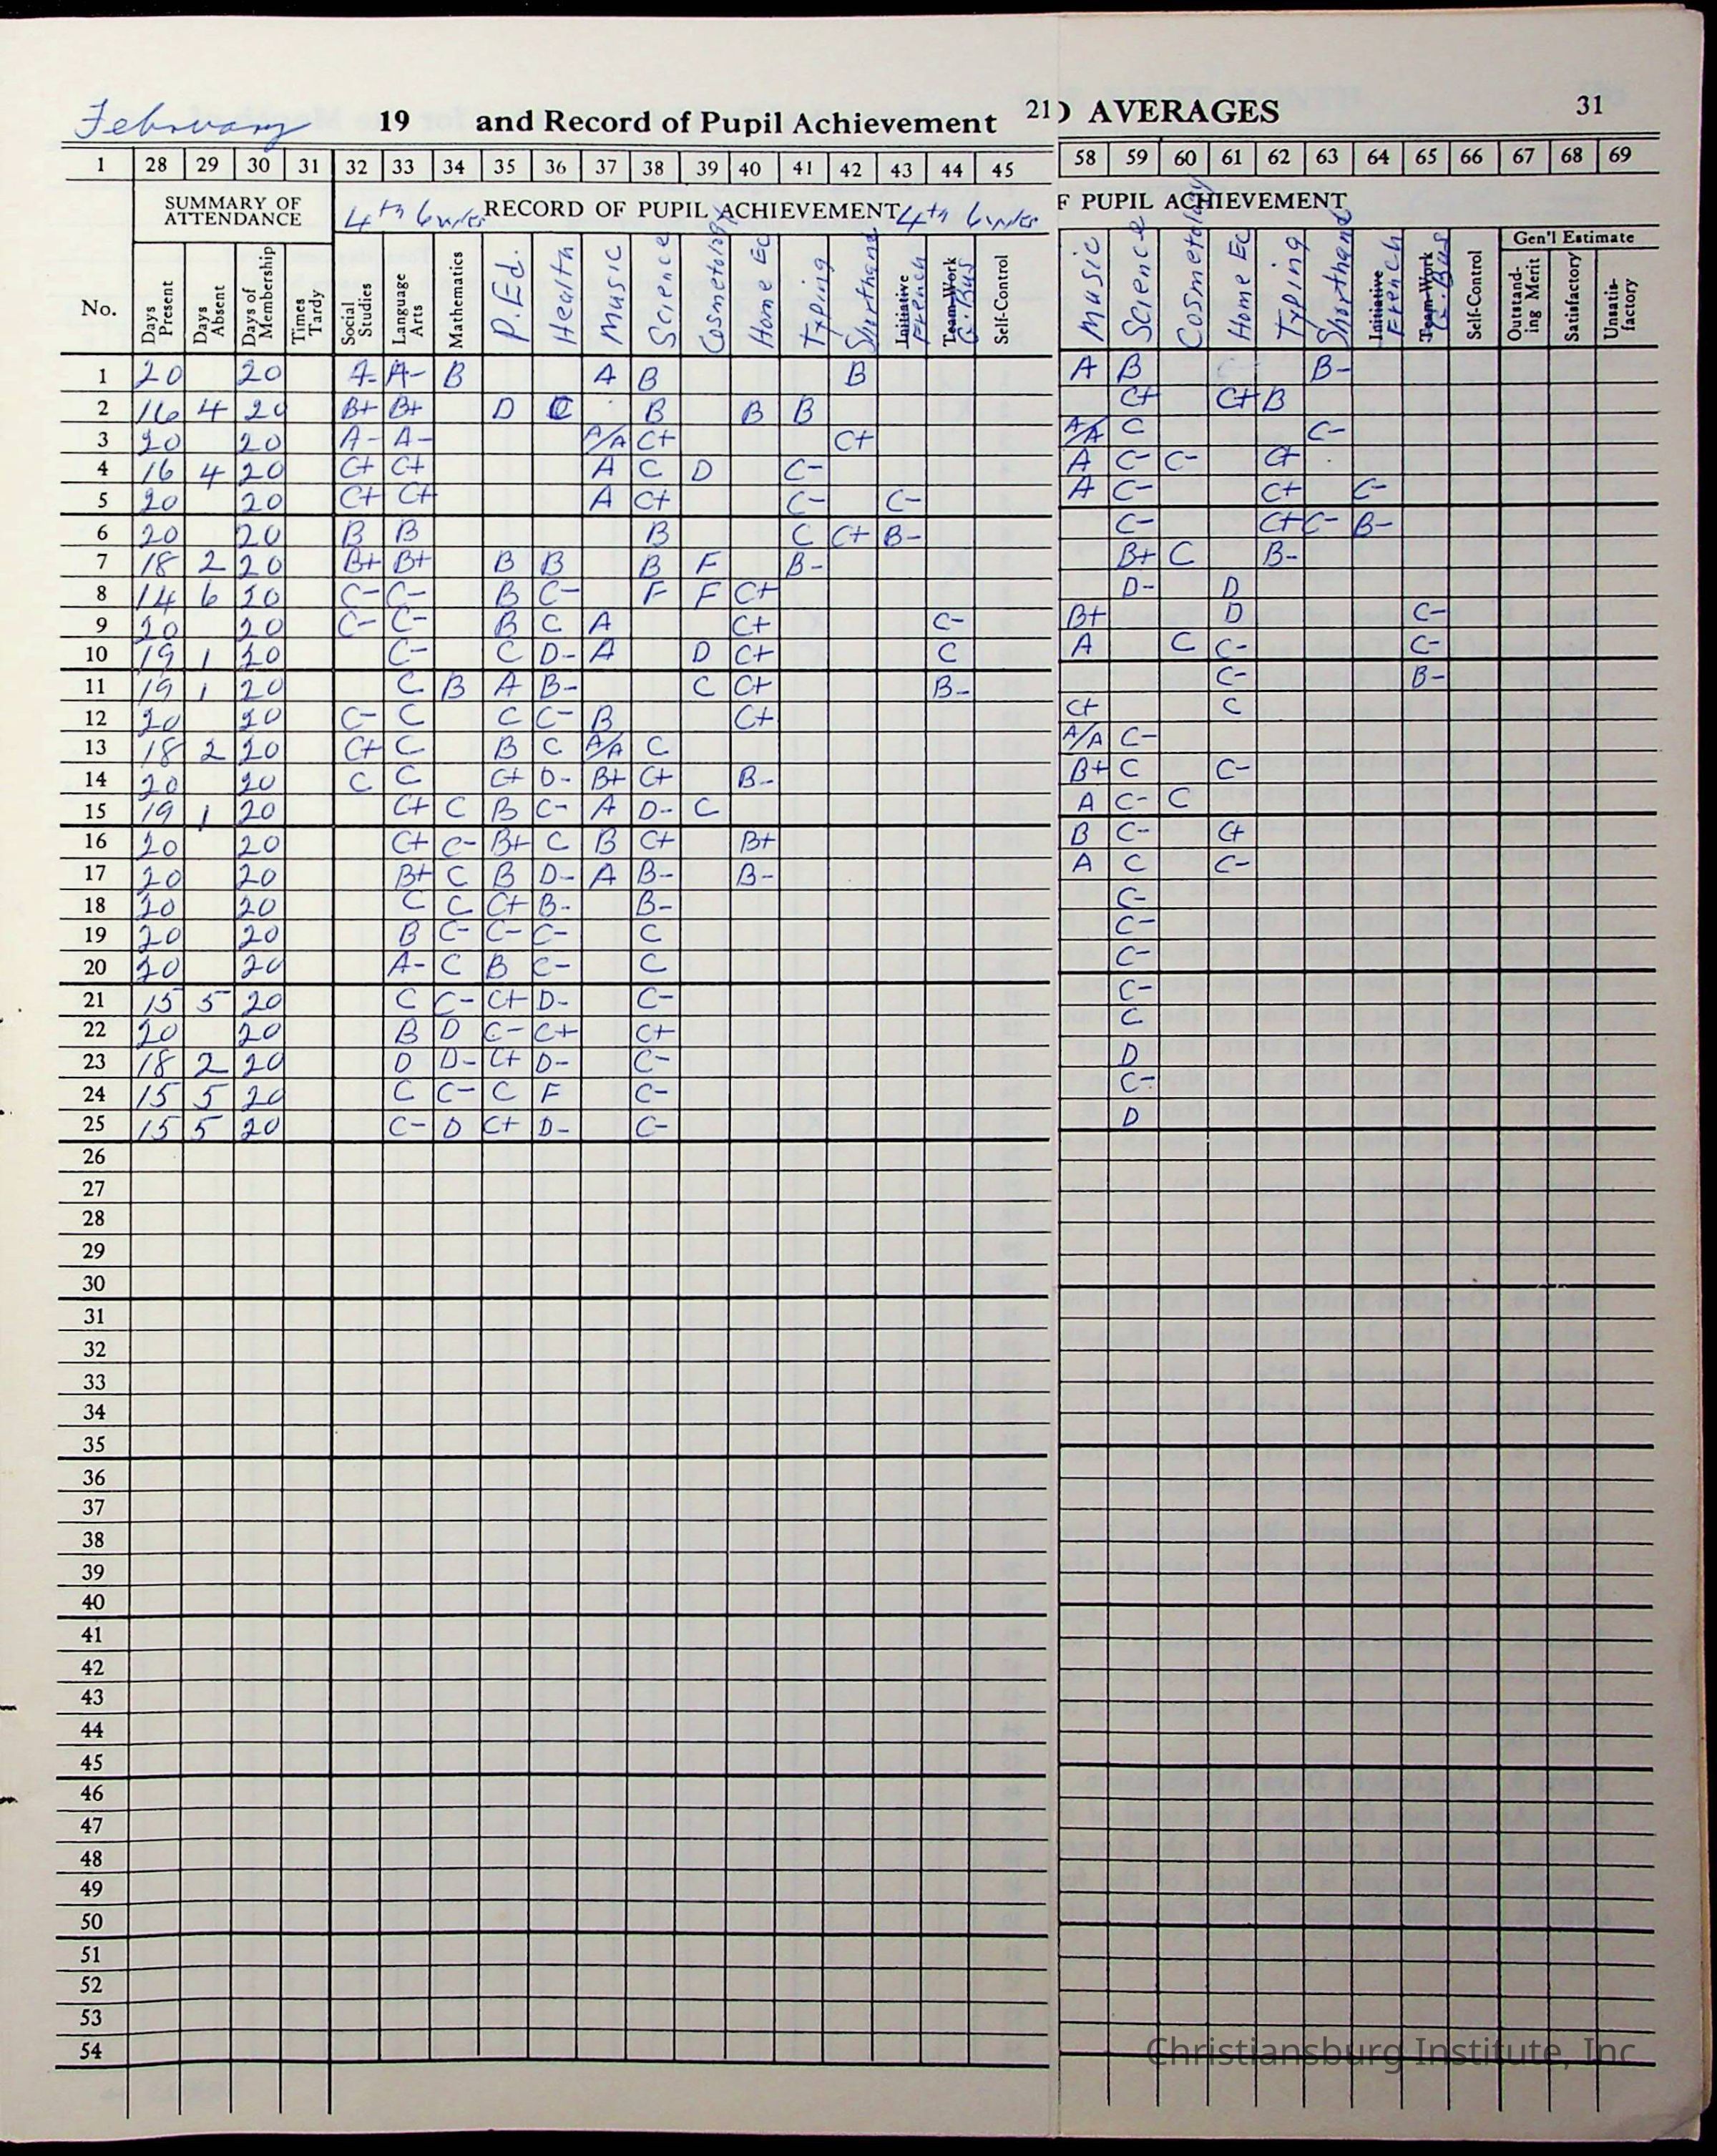 February 19 and Record of Pupil Achievement 21
1 28 29 30 31 32 33 34 35 36 37 38 39 40 41 42 43 44 45
SUMMARY OF ATTENDANCE 4th 6 wks RECORD OF PUPIL ACHIEVEMENT 4th 6 wks
No. Days Present Days Absent Days of Membership Times Tardy Social Studies Language Arts Mathematics P.Ed. Health Music Science Cosmetology Home Ec Typing Shorthand Initiative French Team-Work G. Bus Self-Control
1 20 20 A- A- B A B B
2 16 4 20 B+ B+ D C B B B
3 20 20 A- A- A/A C+ C+
4 16 4 20 C+ C+ A C D C-
5 20 20 C+ C+ A C+ C- C-
6 20 20 B B B C C+ B-
7 18 2 20 B+ B+ B B B F B-
8 14 6 20 C- C- B C- F F C+
9 20 20 C- C- B C A C+ C-
10 19 1 20 C- C D- A D C+ C
11 19 1 20 C B A B- C C+ B-
12 20 20 C- C C C- B C+
13 18 2 20 C+ C B C A/A C
14 20 20 C C C+ D- B+ C+ B-
15 19 1 20 C+ C B C- A D- C
16 20 20 C+ C- B+ C B C+ B+
17 20 20 B+ C B D- A B- B-
18 20 20 C C C+ B- B-
19 20 20 B C- C- C- C
20 20 20 A- C B C- C
21 15 5 20 C C- C+ D- C-
22 20 20 B D C- C+ C+
23 18 2 20 D D- C+ D- C-
24 15 5 20 C C- C F C-
25 15 5 20 C- D C+ D- C-
26
27
28
29
30
31
32
33
34
35
36
37
38
39
40
41
42
43
44
45
46
47
48
49
50
51
52
53
54
AVERAGES 31
58 59 60 61 62 63 64 65 66 67 68 69
F PUPIL ACHIEVEMENT
Gen'l Estimate
Music Science Cosmetology Home Ec Typing Shorthand Initiative French Team-Work G. Bus Self-Control Outstanding Merit Satisfactory Unsatisfactory
A B B-
C+ C+ B
A/A C C-
A C- C- C+
A C- C+ C-
C- C+ C- B-
B+ C B-
D- D
B+ D C-
A C C- C-
C- B-
C+ C
A/A C-
B+ C C-
A C- C
B C- C+
A C C-
C-
C-
C-
C-
C
D
C-
D
Christiansburg Institute, Inc